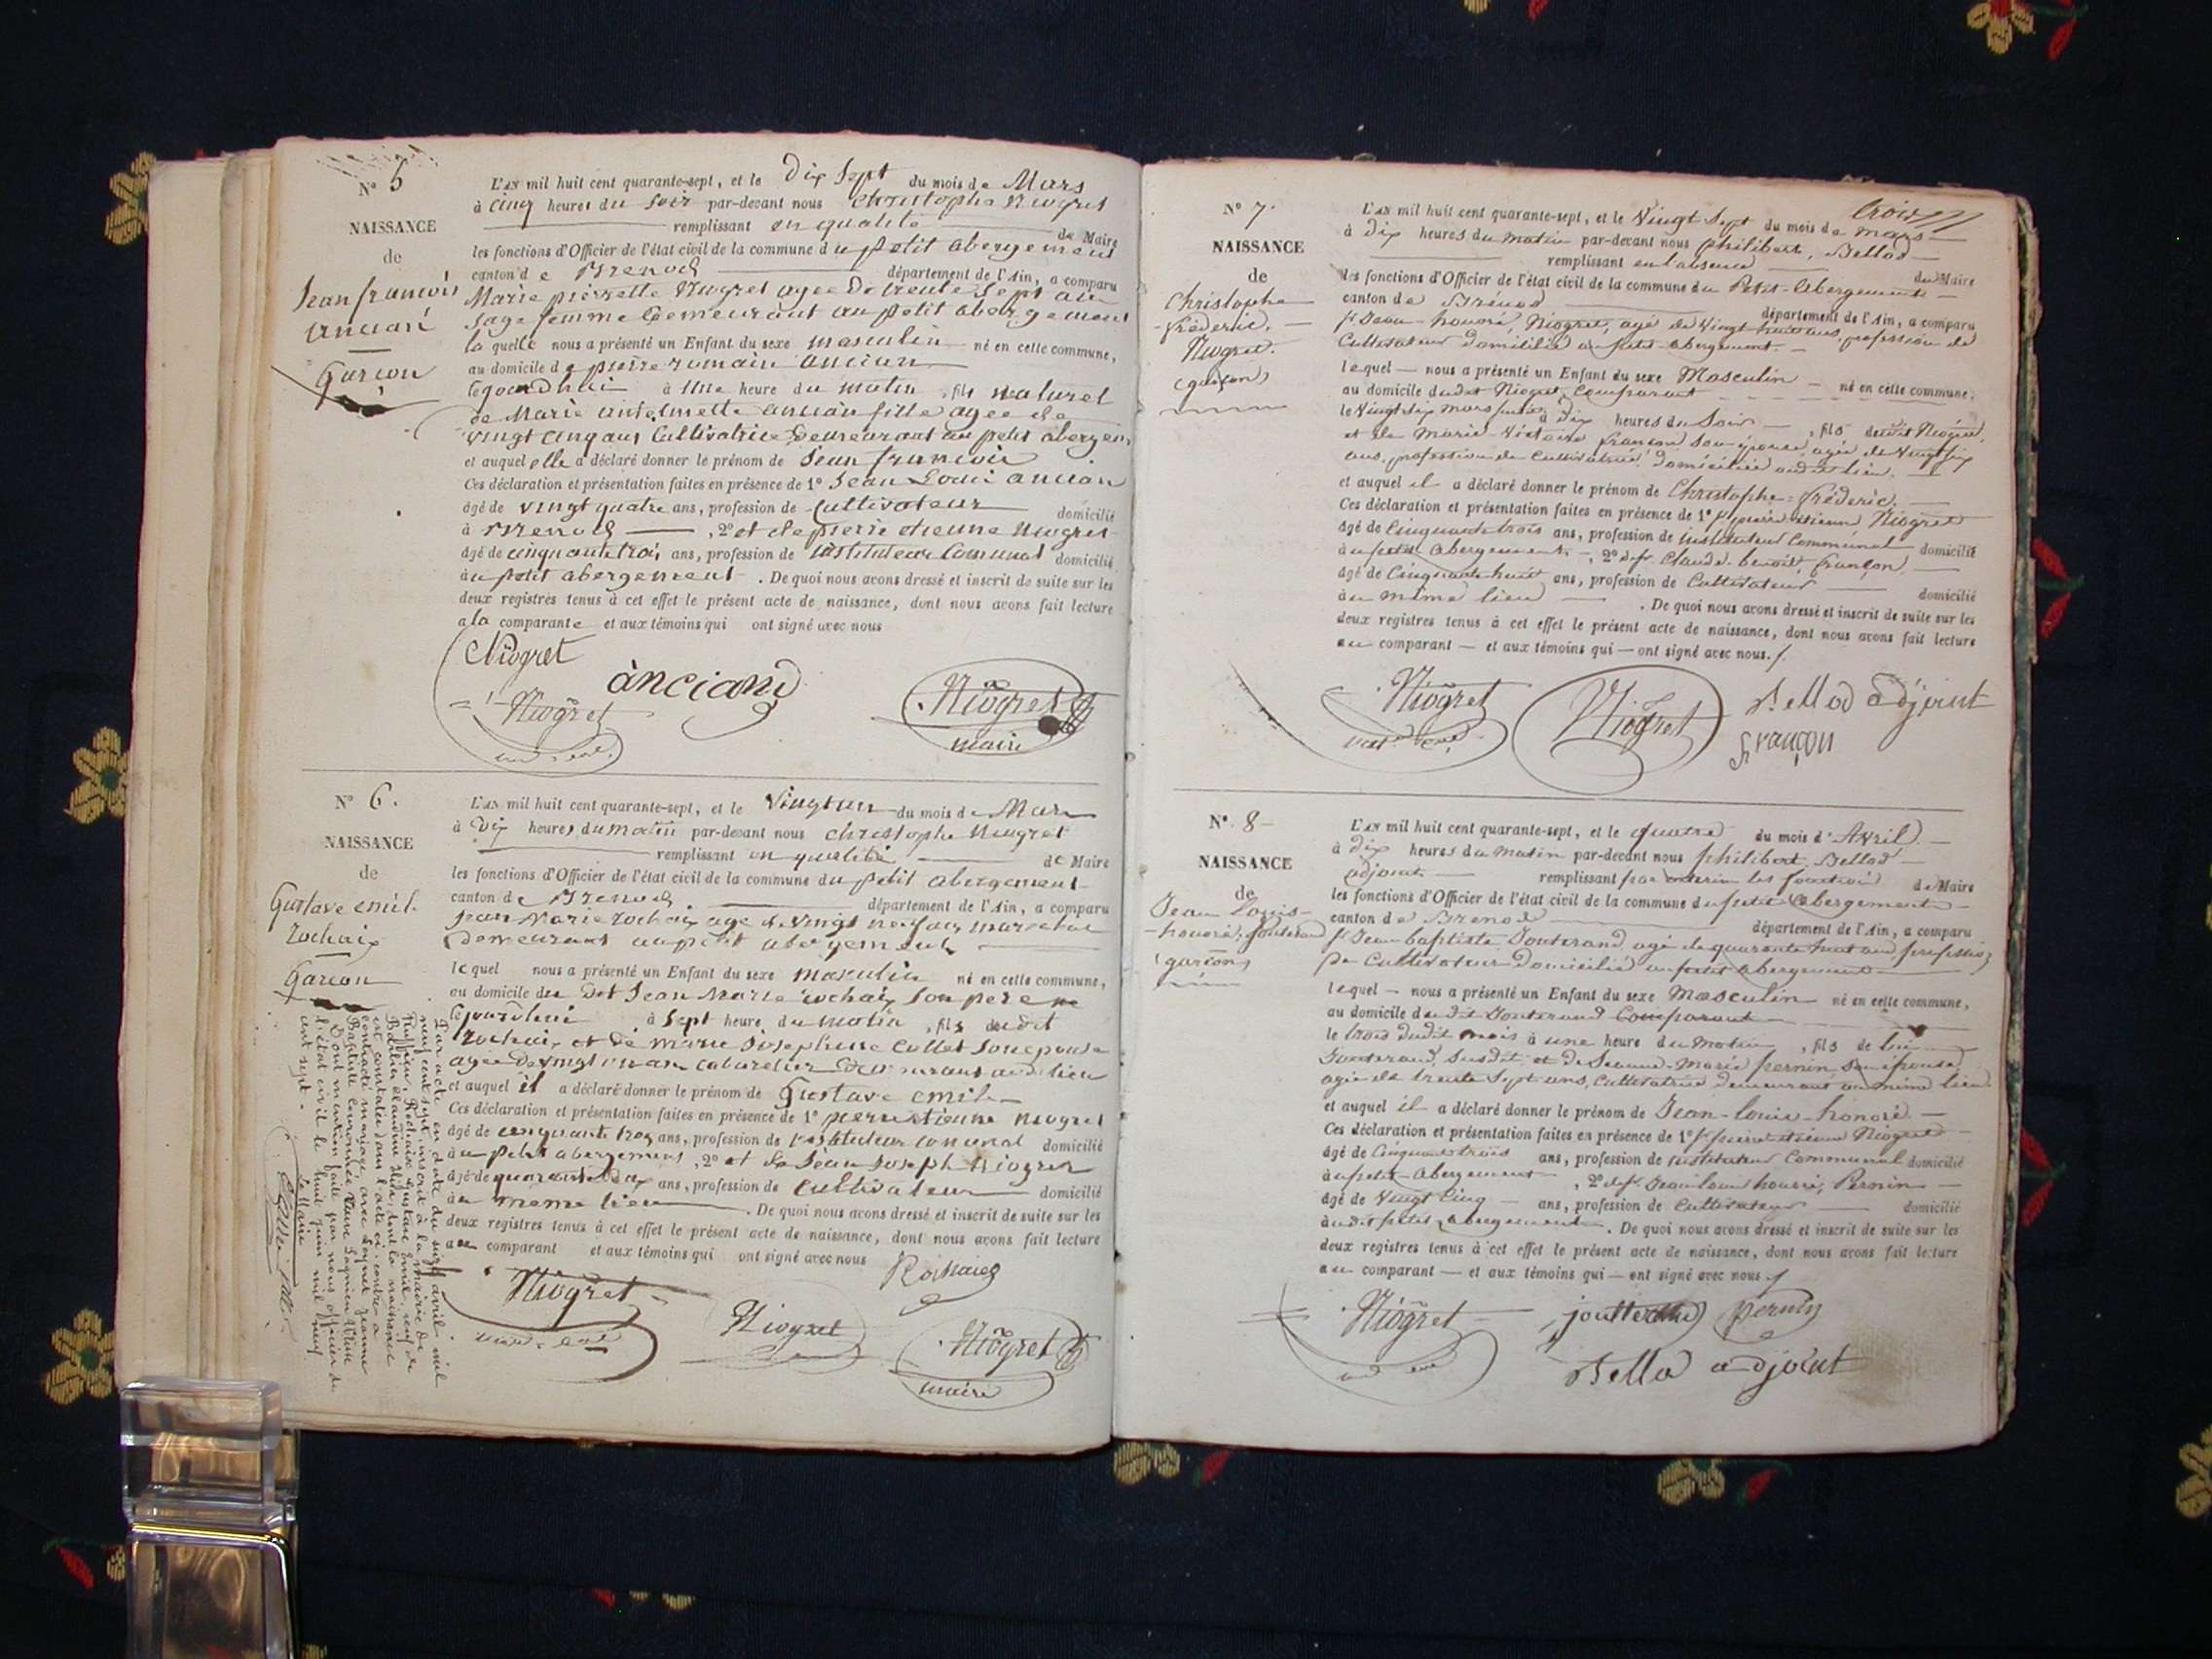 N° 5
NAISSANCE
de
Jean françois
ancian
Garcon
L'AN mil huit cent quarante-sept, et le Dix Sept du mois de Mars
à cinq heures du soir par-devant nous christophe Niogret
remplissant en qualité de Maire
les fonctions d'Officier de l'état civil de la commune du petit abergement
canton de Brenod département de l'Ain, a comparu
Marie pierrette Niogret agee de trente sept ans
sage femme demeurant au petit abergement
la quelle nous a présenté un Enfant du sexe masculin né en cette commune,
au domicile de pierre romain ancian
à Une heure du matin, fils naturel
de Marie antelmette ancian fille agee de
vingt cinq ans Cultivatrice demeurant au petit abergem
et auquel elle a déclaré donner le prénom de Jean francois
Ces déclaration et présentation faites en présence de 1° Jean Louis ancian
âgé de vingt quatre ans, profession de Cultivateur domicilié
à Brenod, 2° et de pierre etienne Niogret
âgé de cinquante trois ans, profession de instituteur Comunal domicilié
à u petit abergement. De quoi nous avons dressé et inscrit de suite sur les
deux registres tenus à cet effet le présent acte de naissance, dont nous avons fait lecture
a la comparante et aux témoins qui ont signé avec nous
Niogret
ànciand
Niogret
Niogret
maire
N° 6.
NAISSANCE
de
Gustave emile
rochaix
Garcon
L'AN mil huit cent quarante-sept, et le Vingt un du mois de Mars
à Dix heures du matin par-devant nous christophe Niogret
remplissant en qualité de Maire
les fonctions d'Officier de l'état civil de la commune du petit abergement
canton de Brenod département de l'Ain, a comparu
Jean Marie rochaix age de vingt neuf ans marechal
demeurant au petit abergement
lequel nous a présenté un Enfant du sexe masculin né en cette commune,
au domicile du dit Jean Marie rochaix son pere
à sept heure du matin, fils du dit
rochaix et de marie josephine Collet son epouse
agee de vingt un an cabaretier demeurant au dit lieu
et auquel il a déclaré donner le prénom de Gustave emile
Ces déclaration et présentation faites en présence de 1° pierre etienne Niogret
âgé de cinquante trois ans, profession de instituteur comunal domicilié
à u petit abergement, 2° et de Jean Joseph Niogret
âgé de quarante ans, profession de Cultivateur domicilié
à u meme lieu. De quoi nous avons dressé et inscrit de suite sur les
deux registres tenus à cet effet le présent acte de naissance, dont nous avons fait lecture
au comparant et aux témoins qui ont signé avec nous
Rochaix
Niogret
Niogret
Niogret
maire
Par acte en date du six avril mil
neuf cent sept, inscrit à la mairie de
Ruffieu, Rochaix Gustave Emile, veuf de
dont la naissance
est constatée dans l'acte ci-contre a
contracté mariage avec
Dont mention faite par nous officier de
l'état civil le huit juin mil neuf
cent sept.
Le Maire
trois
N° 7.
NAISSANCE
de
Christophe
-fréderic,
Niogret.
(garçon)
L'AN mil huit cent quarante-sept, et le Vingt Sept du mois de mars
à dix heures du matin par-devant nous philibert, Bellod
remplissant en l'absence du Maire
les fonctions d'Officier de l'état civil de la commune du Petit-Abergement
canton de Brenod département de l'Ain, a comparu
Sr Jean-honoré, Niogret, agé de Vingt huit ans, profession de
Cultivateur domicilié au petit abergement.
lequel nous a présenté un Enfant du sexe Masculin né en cette commune,
au domicile dudit Niogret, Comparant
le Vingt Six mars à dix heures du Soir, fils dudit Niogret,
et de Marie-Victoire françon son épouse, agée de Vingt Six
ans, profession de Cultivatrice, domiciliée audit lieu.
et auquel il a déclaré donner le prénom de Christophe-fréderic,
Ces déclaration et présentation faites en présence de 1° Sr pierre etienne Niogret
âgé de Cinquante trois ans, profession de instituteur Communal domicilié
à u petit abergement, 2° de Sr Claude benoît, françon,
âgé de Cinquante huit ans, profession de Cultivateur domicilié
à u même lieu. De quoi nous avons dressé et inscrit de suite sur les
deux registres tenus à cet effet le présent acte de naissance, dont nous avons fait lecture
au comparant et aux témoins qui ont signé avec nous.
Niogret
Niogret
Bellod adjoint
françon
N° 8
NAISSANCE
de
Jean Louis-
-honoré, Joutterand
(garçon)
L'AN mil huit cent quarante-sept, et le quatre du mois d'Avril.
à dix heures du matin par-devant nous philibert Bellod
adjoint remplissant par interim les fonctions de Maire
les fonctions d'Officier de l'état civil de la commune du petit Abergement
canton de Brenod département de l'Ain, a comparu
Sr Jean-baptiste Joutterand, agé de quarante huit ans profession
de Cultivateur domicilié au petit abergement
lequel nous a présenté un Enfant du sexe Masculin né en cette commune,
au domicile dudit Joutterand Comparant
le trois dudit mois à une heure du matin, fils de lui
Joutterand, susdit et de Jeanne-Marie pernin, son épouse,
agée de trente Sept ans, Cultivatrice demeurant au même lieu
et auquel il a déclaré donner le prénom de Jean-louis-honoré.
Ces déclaration et présentation faites en présence de 1° Sr pierre-etienne Niogret
âgé de Cinquante trois ans, profession de instituteur Communal domicilié
à u petit Abergement, 2° de Sr Jean louis honoré, Pernin
âgé de Vingt Cinq ans, profession de Cultivateur domicilié
à u dit petit abergement. De quoi nous avons dressé et inscrit de suite sur les
deux registres tenus à cet effet le présent acte de naissance, dont nous avons fait lecture
au comparant et aux témoins qui ont signé avec nous
Niogret
joutterand
pernin
Bellod adjoint